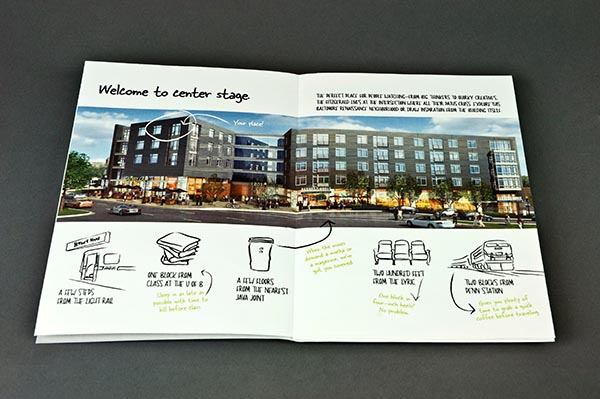 Welcome to center stage
THE PERFECT PLACE FOR PEOPLE WATCHING—FROM BIG THINKERS TO QUIRKY CREATIVES,
THE FITZGERALD LIVES AT THE INTERSECTION WHERE ALL THEIR PATHS CROSS. EXPLORE THIS
BALTIMORE RENAISSANCE NEIGHBORHOOD OR DRAW INSPIRATION FROM THE BUILDING ITSELF.
Your place!
A FEW STEPS
FROM THE LIGHT RAIL
ONE BLOCK FROM
CLASS AT THE U OF B
Sleep in as late as
possible with time to
kill before class
A FEW FLOORS
FROM THE NEAREST
JAVA JOINT
When the muses
demand a mocha or
a magazine, we've
got you covered.
TWO HUNDRED FEET
FROM THE LYRIC
One block in
four-inch heels?
No problem.
TWO BLOCKS FROM
PENN STATION
Gives you plenty of
time to grab a quick
coffee before traveling